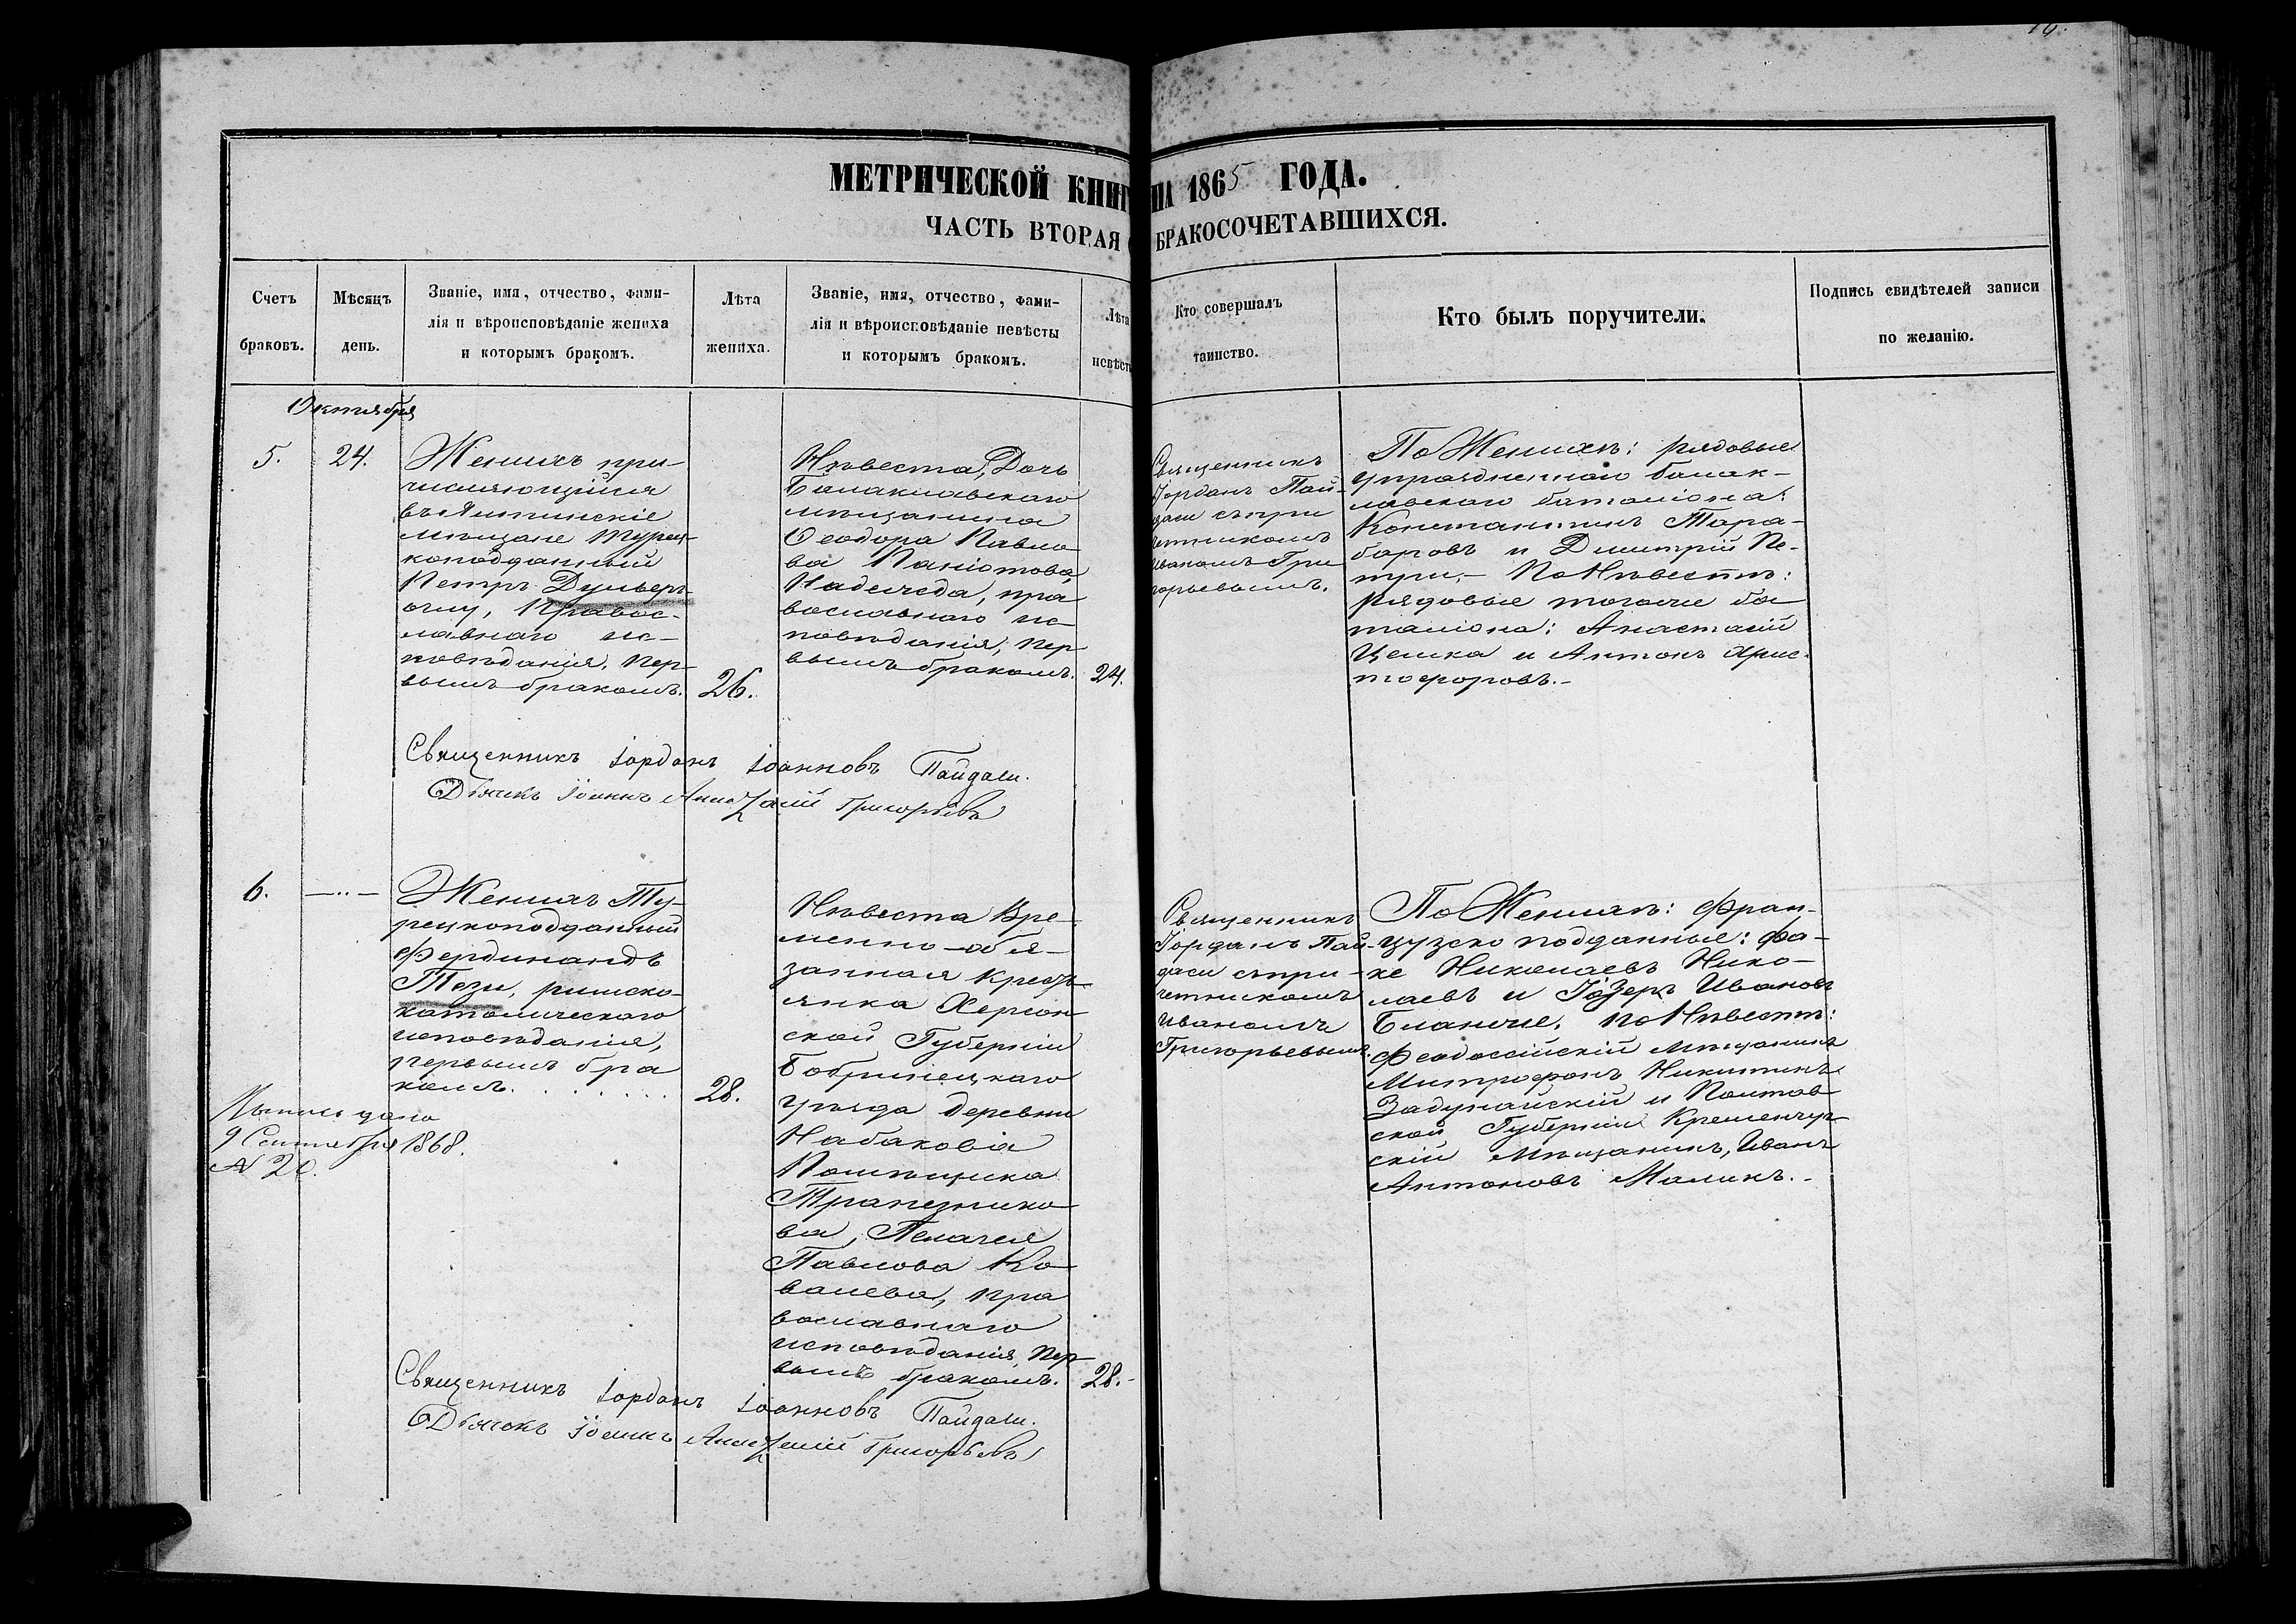 МЕТРИЧЕСКОЙ КНИГ
ША 1865 ГОДА.
ЧАСТЬ ВТОРАЯ
БРАКОСОЧЕТАВШИХСЯ.
Счетъ
браковъ.
Мѣсяцъ
день.
Званіе, имя, отчество, фами-
лія и вѣроисповѣданіе жениха
и которымъ бракомъ.
Лѣта
жениха.
Званіе, имя, отчество, фами-
лія и вѣроисповѣданіе невѣсты
и которымъ бракомъ.
Лѣта
невѣсты
Кто совершалъ
таинство.
Кто былъ поручители.
Подпись свидѣтелей записи
по желанію.
Октября
5.
24.
Женихъ при-
числяющійся
въ Ялтинскіе
мѣщане Турец-
коподданный
Петръ Дульгер-
оглу, Правос-
лавнаго ис-
повѣданія, пер-
вымъ бракомъ.
26.
Невѣста, Дочь
Балаклавскаго
мѣщанина
Ѳеодора Павло-
ва Паніотова,
Надежда, пра-
вославнаго ис-
повѣданія, пер-
вымъ бракомъ.
24.
Священникъ
Іорданъ Пай-
даси съ при-
четникомъ
Иваномъ Гри-
горьевымъ.
По Женихѣ: рядовые
упраздненнаго балак-
лавскаго баталіона:
Константинъ Тара-
баровъ и Димитрій Пе-
три,- По Невѣстѣ:
рядовые тогоже ба-
таліона: Анастасій
Целика и Антонъ Хрис-
тофоровъ.-
Священникъ Іорданъ Іоанновъ Пайдаси.
Дьячекъ Іоаннъ Григорьевъ
6.
—..—
Женихъ Ту-
рецкоподданный
Фердинандъ
Тези, римско-
католическаго
исповѣданія,
первымъ бра-
комъ.......
28.
Выпись дана
9 Сентября 1868.
N 20.
Невѣста Вре-
менно-обя-
занная кресть-
янка Херсон-
ской Губерніи
Бобринецкаго
уѣзда деревни
Набаковіа
Помѣщика
Трапезнико-
ва, Пелагея
Павлова Ко-
валева, пра-
вославнаго
исповѣданія, пер-
вымъ бракомъ.
28.-
Священникъ
Іорданъ Пай-
даси съ при-
четникомъ
Иваномъ
Григорьевымъ.
По Женихѣ: Фран-
цузско подданные: Фа-
ке Николаевъ Нико-
лаевъ и Іозеръ Ивановъ
Бланше. По Невѣстѣ:
Ѳеодосійскій мѣщанинъ
Митрофанъ Никитинъ
Задунайскій и Полтав-
ской Губерніи Кременчуг-
скій Мѣщанинъ, Иванъ
Антоновъ Маликъ.-
Священникъ Іорданъ Іоанновъ Пайдаси.
Дьячекъ Іоаннъ Григорьевъ